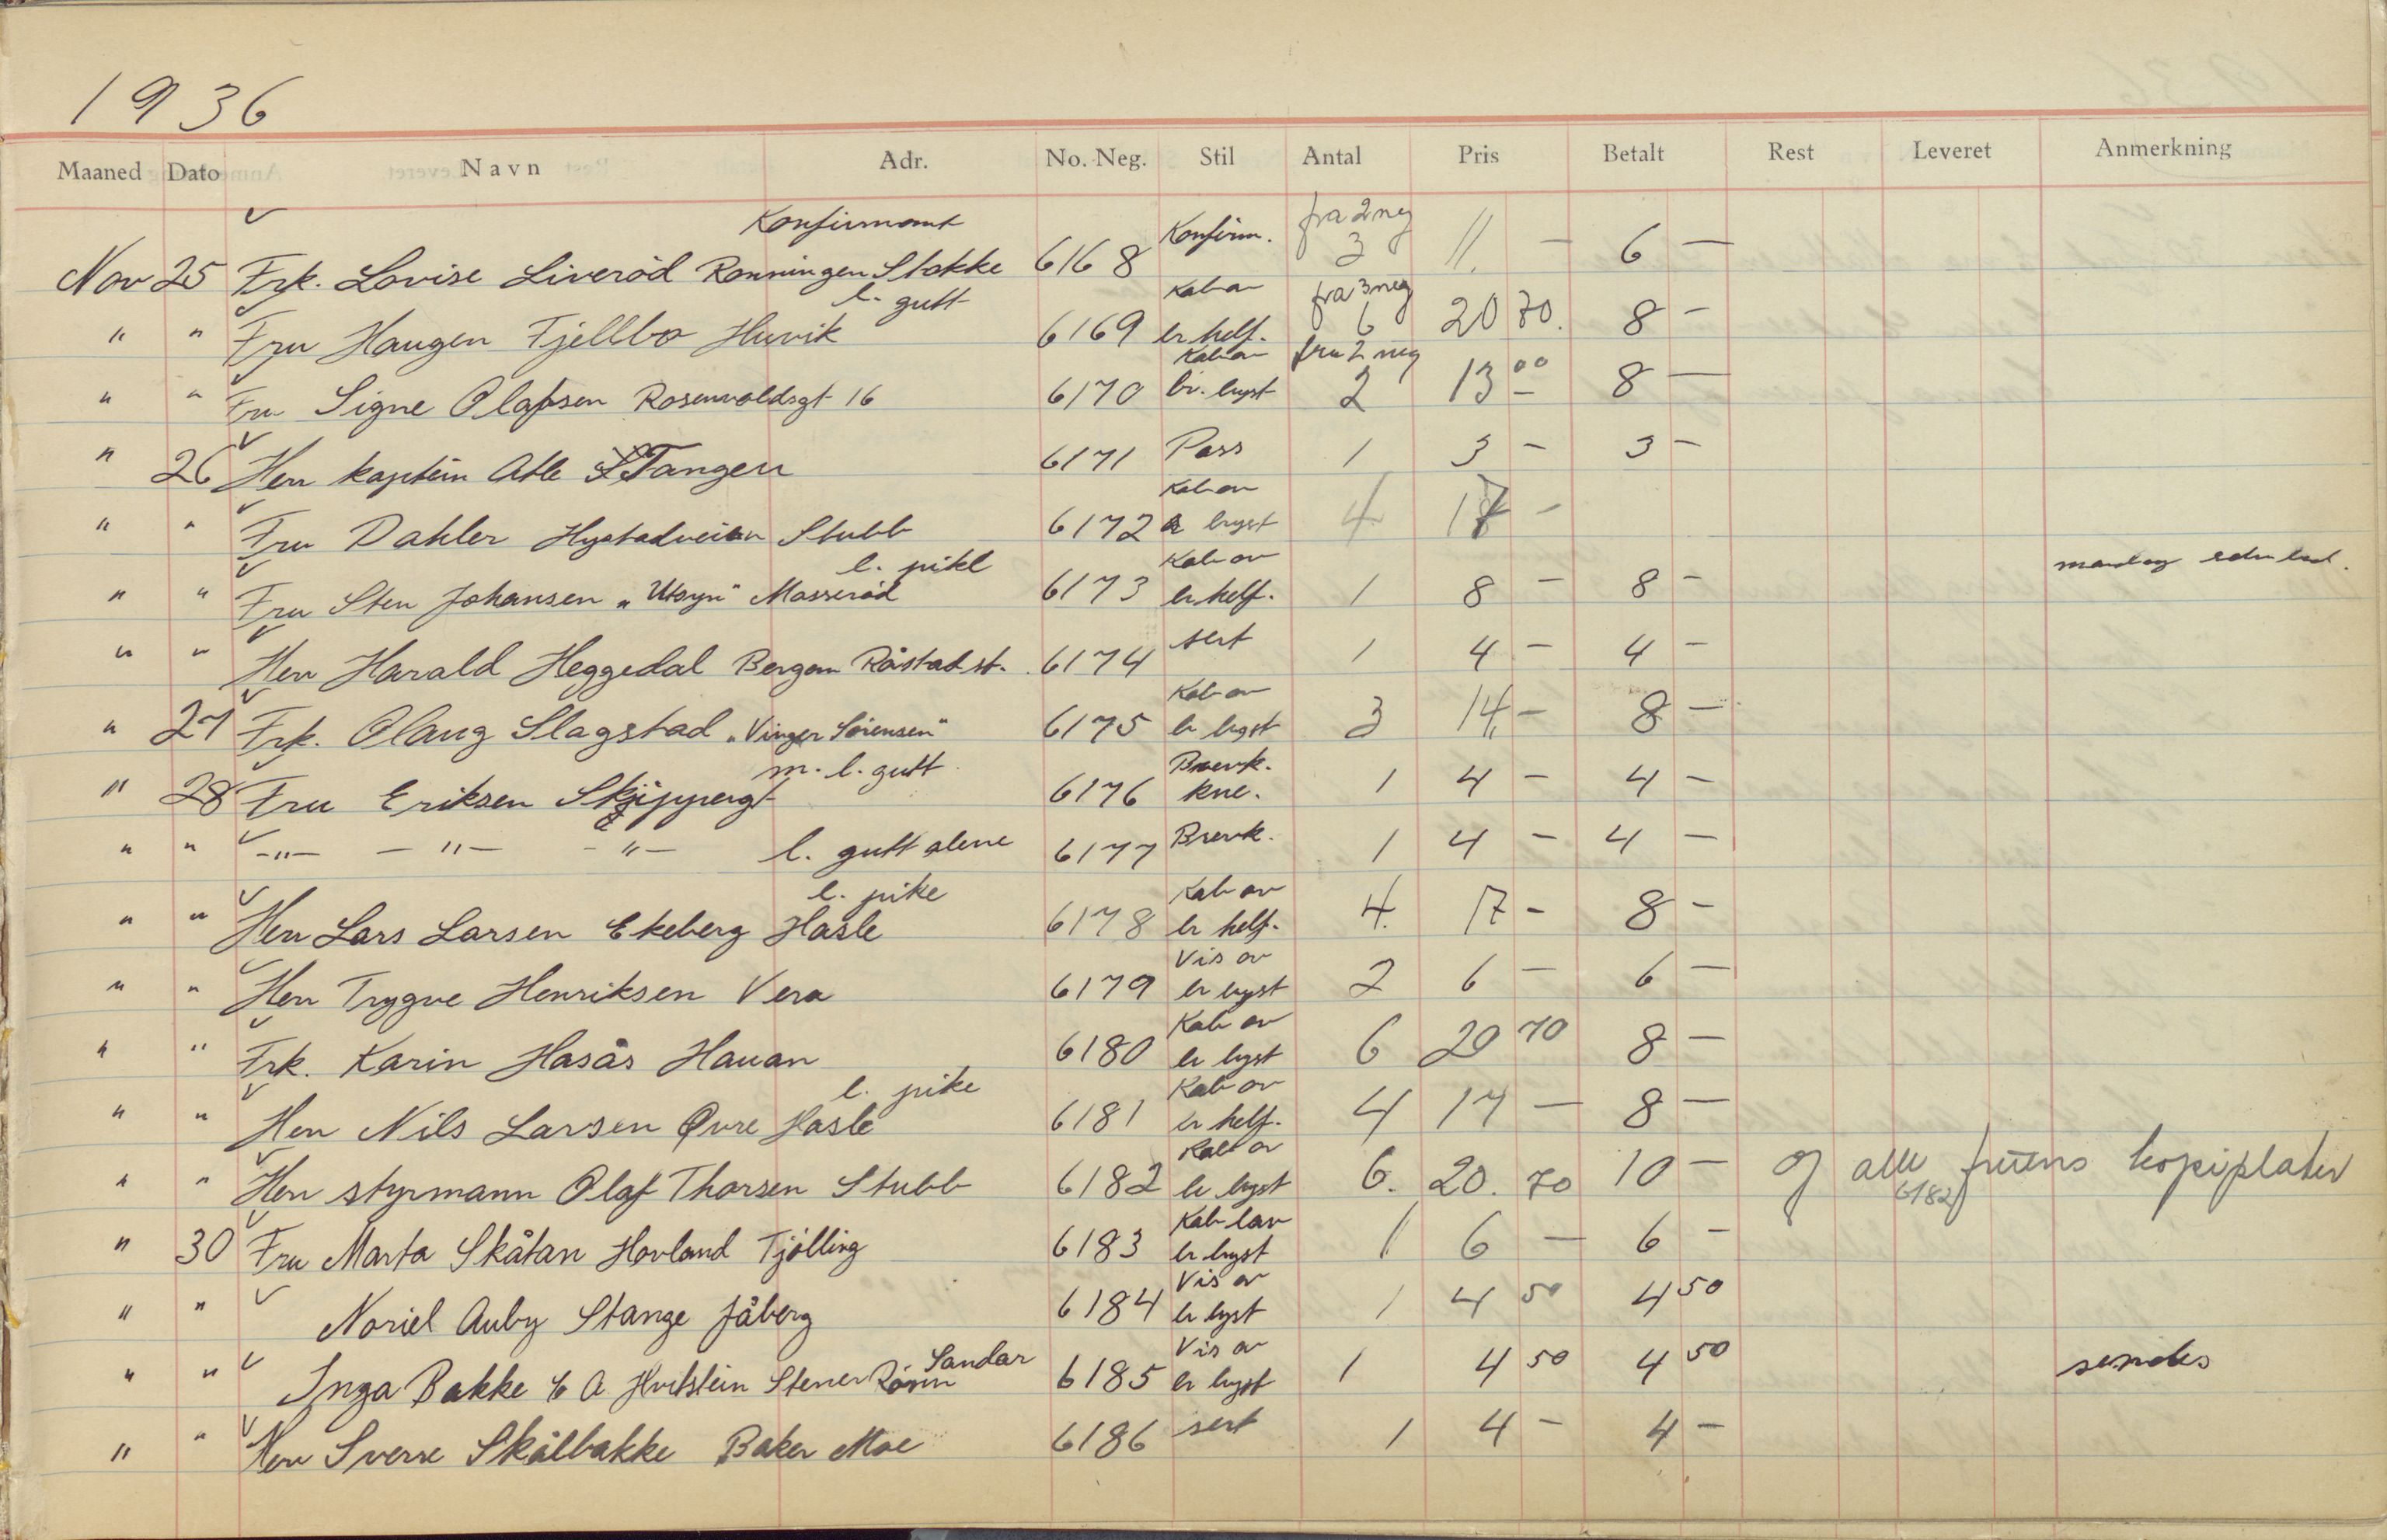 1936
Maaned Dato Navn Adr. No. Neg. Stil Antal Pris Betalt Rest Leveret Anmerkning
Konfirmant Konfirm. fra 2 neg
Nov 25 Frk. Lovise Liveröd Ronningen Stokke 6168 3 11. — 6 —
l. gutt Kab av fra 3 neg
" " Fru Haugen Fjellbo Huvik 6169 br helf. 6 20 70. 8 —
Kab av fra 2 neg
" " Fru Signe Olafsen Rosenvoldsgt 16 6170 br. bryst 2 13 00 8 —
" 26 Herr kaptein Atle Tangen 6171 Pass 1 3 — 3 —
Kab av
" " Fru Dahler Hystadveien Stubb 6172 br bryst 4 17 —
l. pike Kab av
" " Fru Sten Johansen „Utsyn" Mosseröd 6173 br helf. 1 8 — 8 — mandag
" " Herr Harald Heggedal Bergan Råstad st. 6174 sert 1 4 — 4 —
Kab av
" 27 Frk. Olaug Slagstad „Vinger Sörensen" 6175 br bryst 3 14 — 8 —
m. l. gutt Brevk.
" 28 Fru Eriksen Skippergt 6176 kne. 1 4 — 4 —
" " —"— —"— —"— l. gutt alene 6177 Brevk. 1 4 — 4 —
l. pike Kab av
" " Herr Lars Larsen Ekeberg Hasle 6178 br helf. 4. 17 — 8 —
Vis av
" " Herr Trygve Henriksen Vera 6179 br bryst 2 6 — 6 —
Kab av
" " Frk. Karin Hasås Hauan 6180 br bryst 6 20 70 8 —
l. pike Kab av
" " Herr Nils Larsen Øvre Hasle 6181 br helf. 4 17 — 8 —
Kab av
" " Herr styrmann Olaf Thorsen Stubb 6182 br bryst 6. 20. 70 10 — og alle fruens kopiplater
6182
Kab lav
" 30 Fru Marta Skåtan Hovland Tjölling 6183 br bryst 1 6 — 6 —
Vis av
" " Noriel Auby Stange Jåberg 6184 br bryst 1 4 50 4 50
Sandar Vis av
" " Inga Bakke % A. Hvitstein Stener Rönn 6185 br bryst 1 4 50 4 50 sendes
" " Herr Sverre Skålbakke Baker Moe 6186 sert 1 4 — 4 —